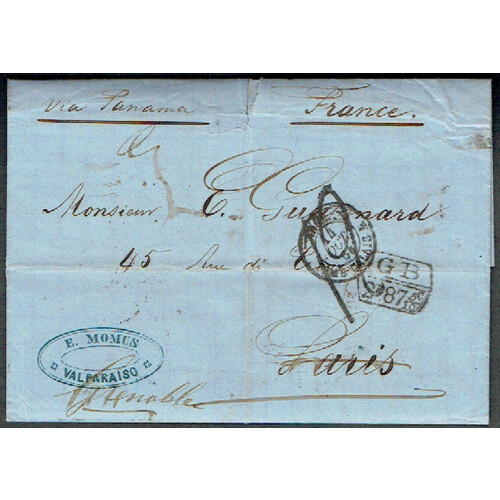 Via Panama France.
Monsieur E.
45 Rue
Paris
GB
87
E. MOMUS
VALPARAISO
Grenoble